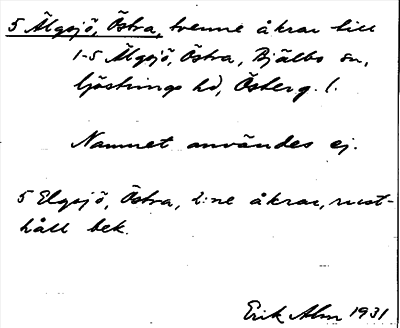 5 Älgsjö, Östra, trenne åkrar till
1-5 Älgsjö, Östra, Bjälbo sn,
Göstrings hd, Österg. l.
Namnet användes ej.
5 Elgsjö, Östra, 2:ne åkrar, rust-
håll bek.
Erik Alm 1931